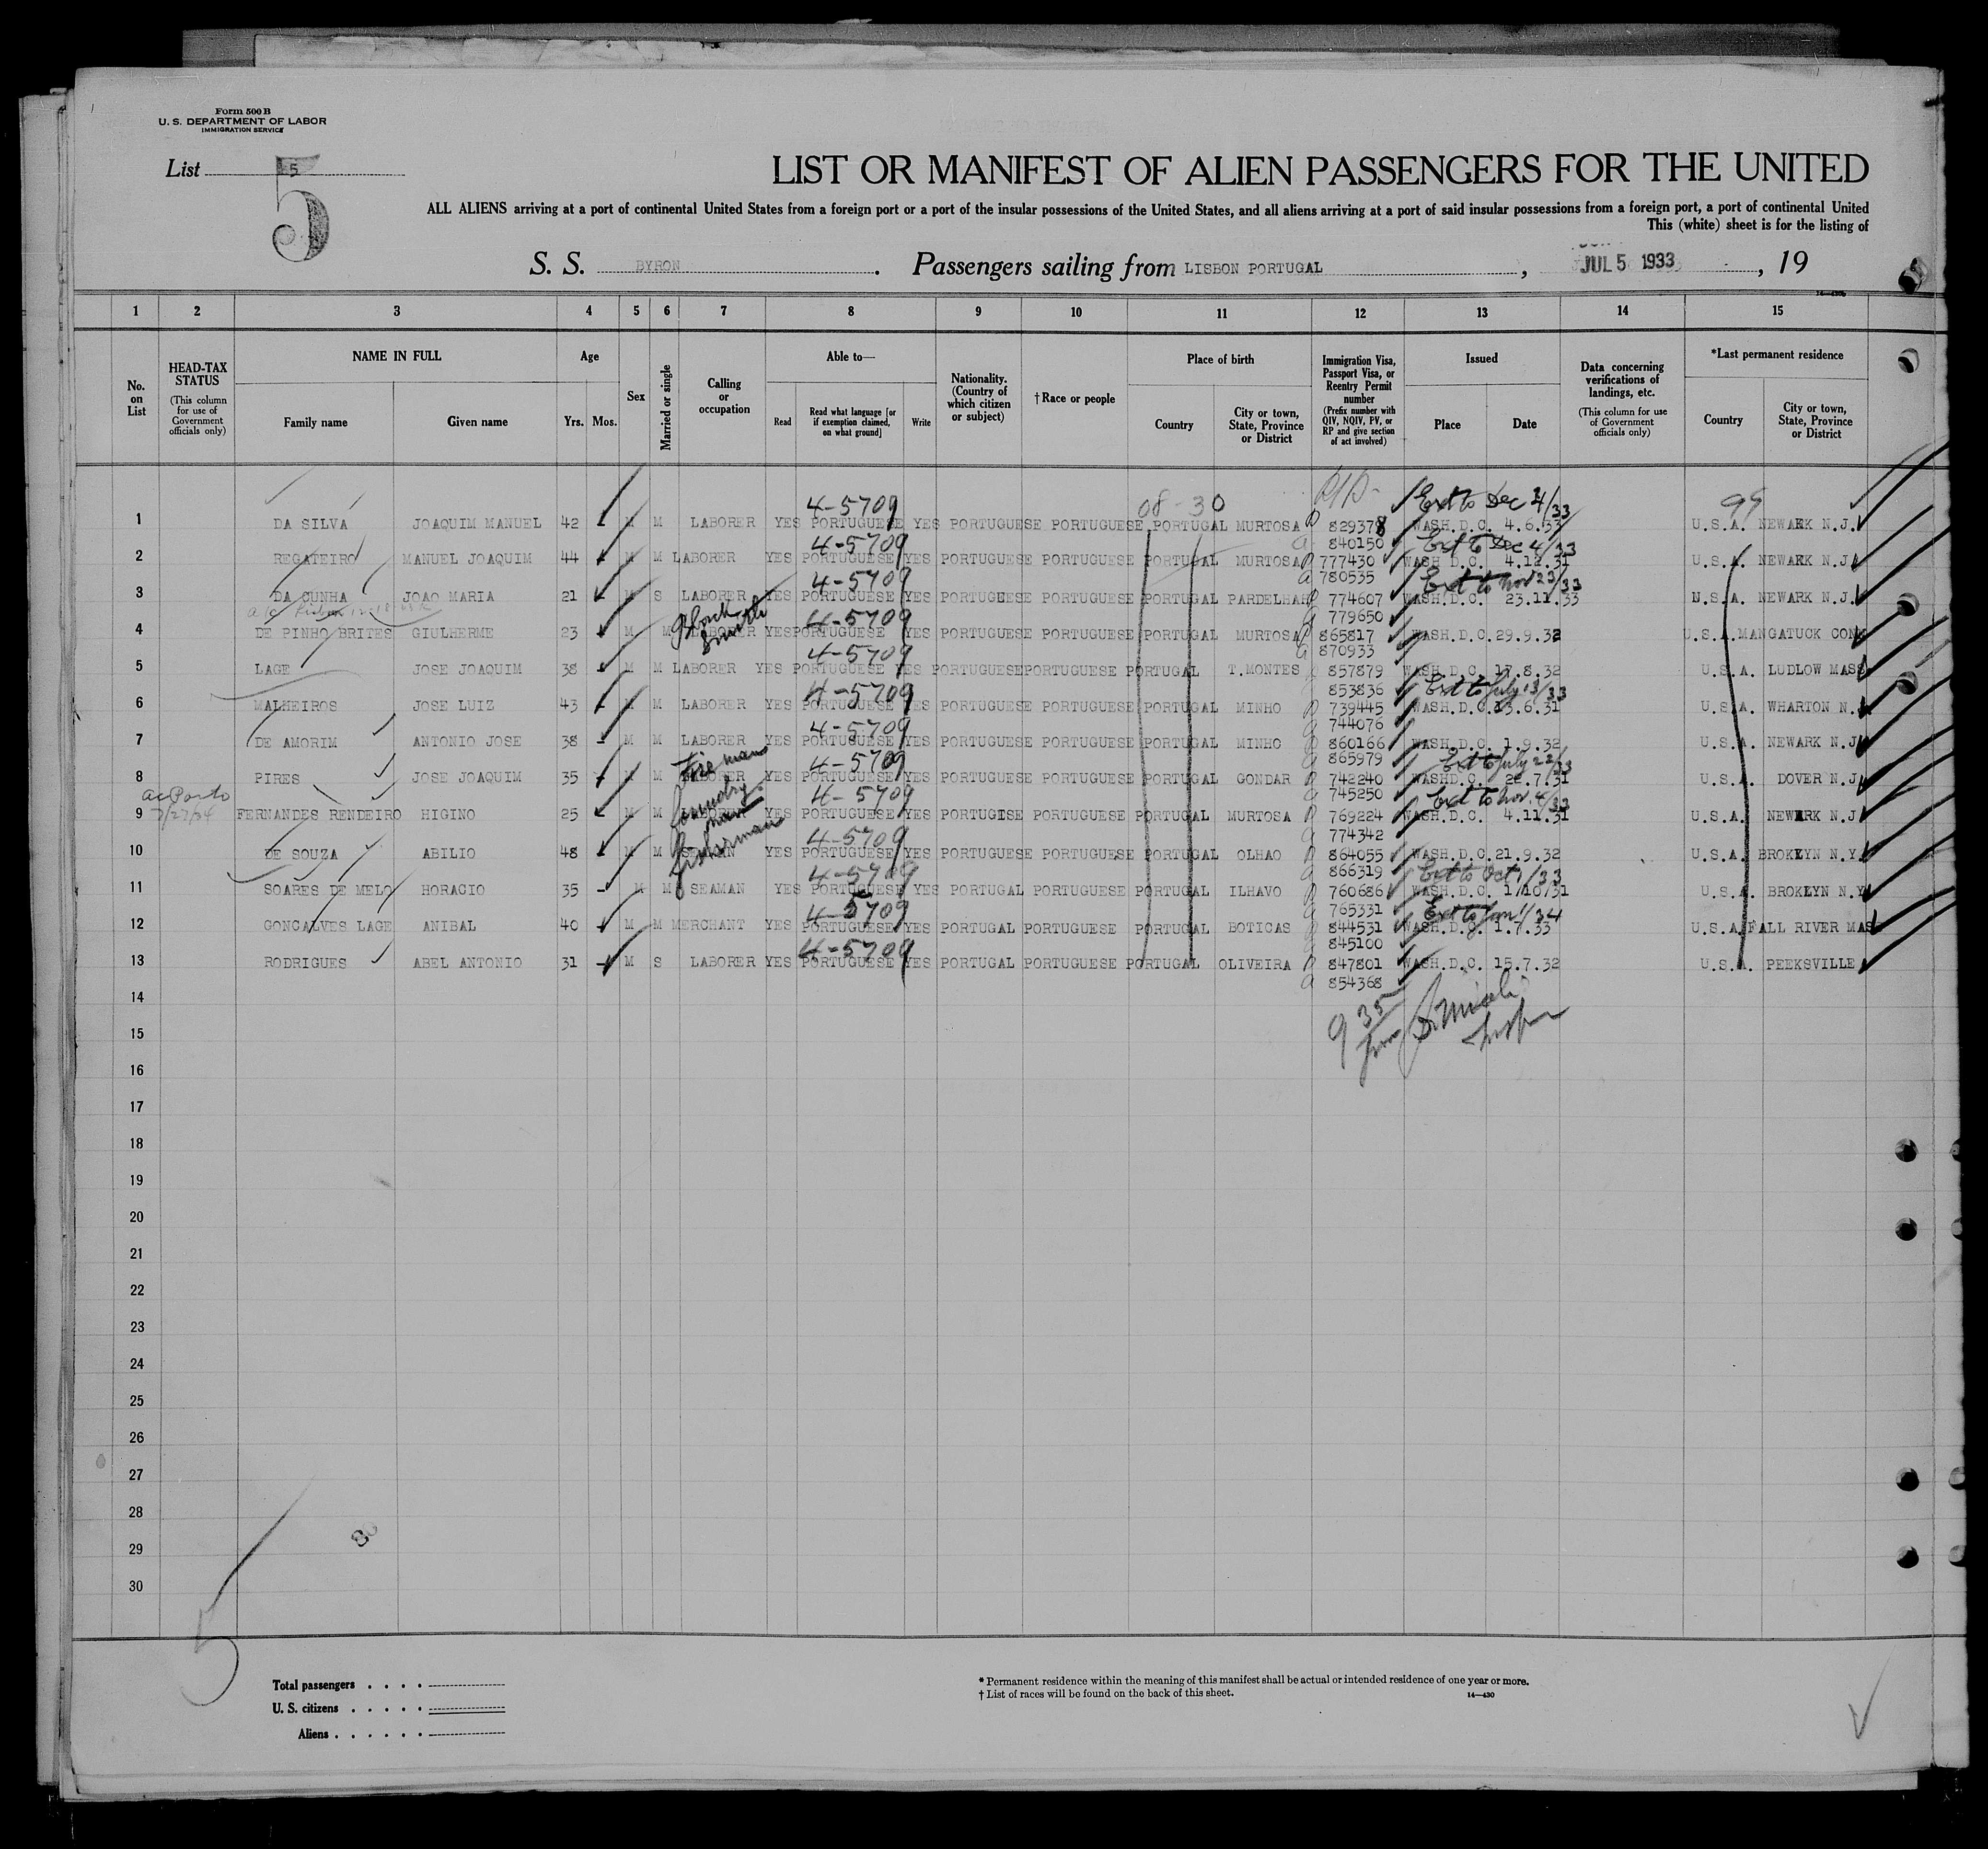 Form 500 B
U. S. DEPARTMENT OF LABOR
IMMIGRATION SERVICE
List 5
5
LIST OR MANIFEST OF ALIEN PASSENGERS FOR THE UNITED
ALL ALIENS arriving at a port of continental United States from a foreign port or a port of the insular possessions of the United States, and all aliens arriving at a port of said insular possessions from a foreign port, a port of continental United
This (white) sheet is for the listing of
S. S. BYRON. Passengers sailing from LISBON PORTUGAL, JUL 5 1933, 19
1 2 3 4 5 6 7 8 9 10 11 12 13 14 15
No. on List
HEAD-TAX STATUS (This column for use of Government officials only)
NAME IN FULL
Family name Given name
Age
Yrs. Mos.
Sex
Married or single
Calling or occupation
Able to—
Read Read what language [or if exemption claimed, on what ground] Write
Nationality. (Country of which citizen or subject)
† Race or people
Place of birth
Country City or town, State, Province or District
Immigration Visa, Passport Visa, or Reentry Permit number (Prefix number with QIV, NQIV, PV, or RP and give section of act involved)
Issued
Place Date
Data concerning verifications of landings, etc. (This column for use of Government officials only)
*Last permanent residence
Country City or town, State, Province or District
4-5709 08-30 Ext to Dec 4/33 99
1 DA SILVA JOAQUIM MANUEL 42 M M LABORER YES PORTUGUESE YES PORTUGUESE PORTUGUESE PORTUGAL MURTOSA 829378 WASH.D.C. 4.6.33 U.S.A. NEWARK N.J.
4-5709 840150 Ext to Dec 4/33
2 REGATEIRO MANUEL JOAQUIM 44 M M LABORER YES PORTUGUESE YES PORTUGUESE PORTUGUESE PORTUGAL MURTOSA 777430 WASH D.C. 4.12.31 U.S.A. NEWARK N.J.
4-5709 780535 Ext to Nov 23/33
3 DA CUNHA JOAO MARIA 21 M S LABORER YES PORTUGUESE YES PORTUGUESE PORTUGUESE PORTUGAL PARDELHAH 774607 WASH.D.C. 23.11.33 U.S.A. NEWARK N.J.
4-5709 779650
4 DE PINHO BRITES GIULHERME 23 M M LABORER YES PORTUGUESE YES PORTUGUESE PORTUGUESE PORTUGAL MURTOSA 865817 WASH.D.C. 29.9.32 U.S.A. MANGATUCK CONN
4-5709 870933
5 LAGE JOSE JOAQUIM 38 M M LABORER YES PORTUGUESE YES PORTUGUESE PORTUGUESE PORTUGAL T.MONTES 857879 WASH.D.C. 17.8.32 U.S.A. LUDLOW MASS
4-5709 853836 Ext to July 13/33
6 MALHEIROS JOSE LUIZ 43 M M LABORER YES PORTUGUESE YES PORTUGUESE PORTUGUESE PORTUGAL MINHO 739445 WASH.D.C. 13.6.31 U.S.A. WHARTON N.J.
4-5709 744076
7 DE AMORIM ANTONIO JOSE 38 M M LABORER YES PORTUGUESE YES PORTUGUESE PORTUGUESE PORTUGAL MINHO 860166 WASH.D.C. 1.9.32 U.S.A. NEWARK N.J.
Fireman 4-5709 865979 Ext to July 22/33
8 PIRES JOSE JOAQUIM 35 M M LABORER YES PORTUGUESE YES PORTUGUESE PORTUGUESE PORTUGAL GONDAR 742240 WASHD.C. 22.7.31 U.S.A. DOVER N.J.
ac Porto 4-5709 745250 Ext to Nov. 4/33
9 7/27/34 FERNANDES RENDEIRO HIGINO 25 M M YES PORTUGUESE YES PORTUGUESE PORTUGUESE PORTUGAL MURTOSA 769224 WASH.D.C. 4.11.31 U.S.A. NEWARK N.J.
Fisherman 4-5709 774342
10 DE SOUZA ABILIO 48 M M SEAMAN YES PORTUGUESE YES PORTUGUESE PORTUGUESE PORTUGAL OLHAO 864055 WASH.D.C. 21.9.32 U.S.A. BROKLYN N.Y.
4-5709 866319 Ext to Oct 1/33
11 SOARES DE MELO HORACIO 35 M M SEAMAN YES PORTUGUESE YES PORTUGAL PORTUGUESE PORTUGAL ILHAVO 760686 WASH.D.C. 1/10/31 U.S.A. BROKLYN N.Y.
4-5709 765331 Ext to Jan 1/34
12 GONCALVES LAGE ANIBAL 40 M M MERCHANT YES PORTUGUESE YES PORTUGAL PORTUGUESE PORTUGAL BOTICAS 844531 WASH.D.C. 1.7.33 U.S.A. FALL RIVER MAS
4-5709 845100
13 RODRIGUES ABEL ANTONIO 31 M S LABORER YES PORTUGUESE YES PORTUGAL PORTUGUESE PORTUGAL OLIVEIRA 847801 WASH.D.C. 15.7.32 U.S.A. PEEKSVILLE
854368
14
15
16
17
18
19
20
21
22
23
24
25
26
27
28
29
30
5
Total passengers
U. S. citizens
Aliens
* Permanent residence within the meaning of this manifest shall be actual or intended residence of one year or more.
† List of races will be found on the back of this sheet.
14—430